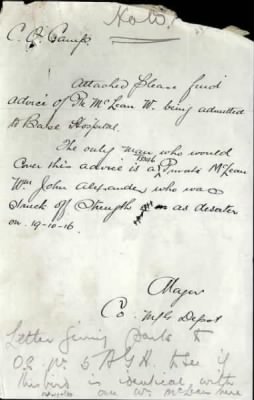 C. O. Camp.
Attached please find
advice of Pte McLean W. being admitted
to Base Hospital.
The only man who would
cover this advice is a Private McLean
Wm John Alexander who was
struck of Strength as deserter
on 19-10-16.
Major
Co Depot
Letter giving parts to
O.C. No. 5 A.G.H. to see if
this bird is identical with
our Wm McLean here